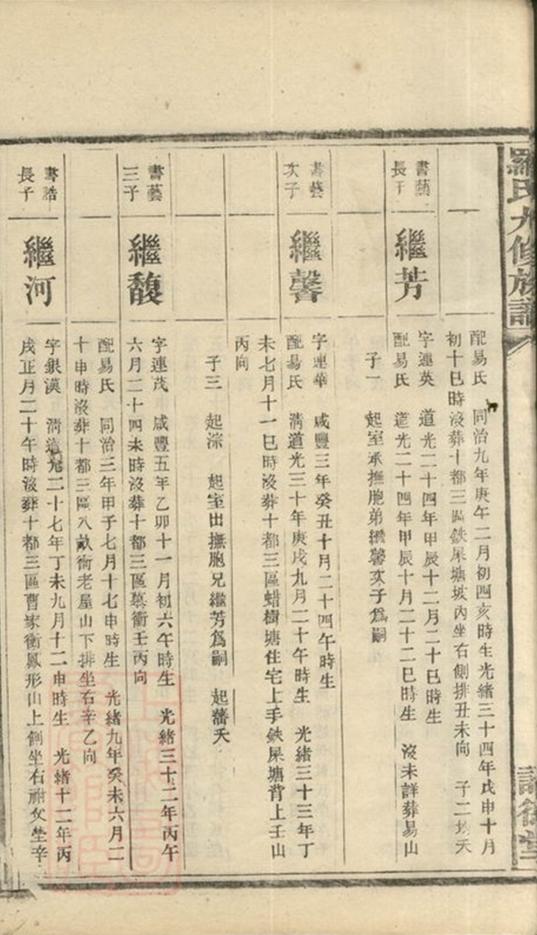 羅氏九修族譜
配易氏　同治九年庚午二月初四亥時生光緒三十四年戊申十月
初十巳時沒葬十都三區鉄屎塘坡內坐右側排丑未向　子二均夭
書藝長子
繼芳
字連英　道光二十四年甲辰十二月二十巳時生
配易氏　道光二十四年甲辰十月二十二巳時生　沒未詳葬易山
子一　起室承撫胞弟繼馨次子為嗣
書藝次子
繼馨
字連華　咸豐三年癸丑十月二十四午時生
配易氏　清道光三十年庚戌九月二十午時生　光緒三十三年丁
未七月十一巳時沒葬十都三區蜡樹塘住宅上手鉄屎塘背上壬山
丙向
子三　起淙　起室出撫胞兄繼芳為嗣　起藩夭
書藝三子
繼馥
字連茂　咸豐五年乙卯十一月初六午時生　光緒三十二年丙午
六月二十四未時沒葬十都三區衝壬丙向
配易氏　同治三年甲子七月十七申時生　光緒九年癸未六月二
十申時沒葬十都三區八畝衝老屋山下排坐右辛乙向
書誥長子
繼河
字銀漢　清道光二十七年丁未九月十二申時生　光緒十二年丙
戌正月二十午時沒葬十都三區曹家衝鳳形山上側坐右祔父坐辛